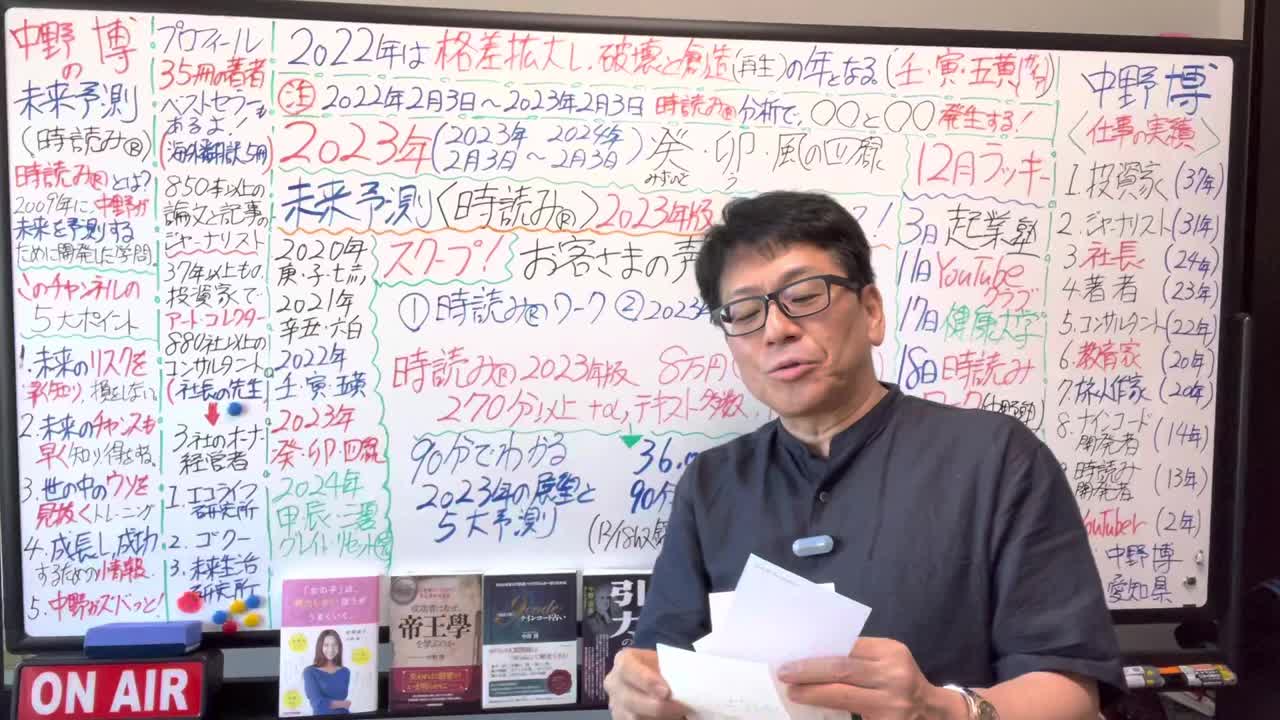 中野博
の
未来予測
(時読み®)
時読み®とは?
2009年に中野が
未来を予測する
ために開発した学問
このチャンネルの
5大ポイント
1.未来のリスクを
損をしない
2.未来のチャンスも
早く知り得をする。
3.世の中のウソを
見抜くトレーニング
4.成長し、成功
するための情報
5.中野がズバッと!
プロフィール
35冊の著者
ベストセラーも
あるよ
(海外翻訳5冊)
850本以上の
論文と記事の
ジャーナリスト
37年以上もの、
投資家で
アートコレクター
880社以上の
コンサルタント
(社長の先生)
3社のオーナー
経営者
1.エコライフ
研究所
2.ゴクー
3.未来生活
研究所
2022年は格差拡大し、破壊と創造(再生)の年となる(壬・寅・五黄
注 2022年2月3日〜2023年2月3日 時読み®分析で、〇〇と〇〇発生する!
2023年(2023年 2024年
2月3日〜2月3日)
癸・卯・風の四緑
みずのと う
未来予測〈時読み®〉2023年版
2020年
庚・子・七赤
2021年
辛・丑・六白
2022年
壬・寅・五黄
2023年
癸・卯・四緑
2024年
甲・辰・三碧
グレイトリセット
スクープ!
お客さまの声
①時読み®ワーク ②2023
時読み®2023年版 8万円
270分以上+α,テキスト多数
90分でわかる
2023年の展望と
5大予測
36.
90分
12月ラッキー
3日 起業塾
11日 YouTube
クラブ
17日 健康大学
18日 時読み
ワーク
中野博
〈仕事の実績〉
1.投資家 (37年)
2.ジャーナリスト (31年)
3.社長 (24年)
4.著者 (23年)
5.コンサルタント (22年)
6.教育家 (20年)
7.旅人作家 (20年)
8.ナインコード
開発者 (14年)
時読み
開発者 (13年)
YouTuber (2年)
中野博
愛知県
「女の子」は、
うまくいく。
成功者はなぜ、
帝王學
を学ぶのか
9code
ナインコード占い
引
力
の
ON AIR